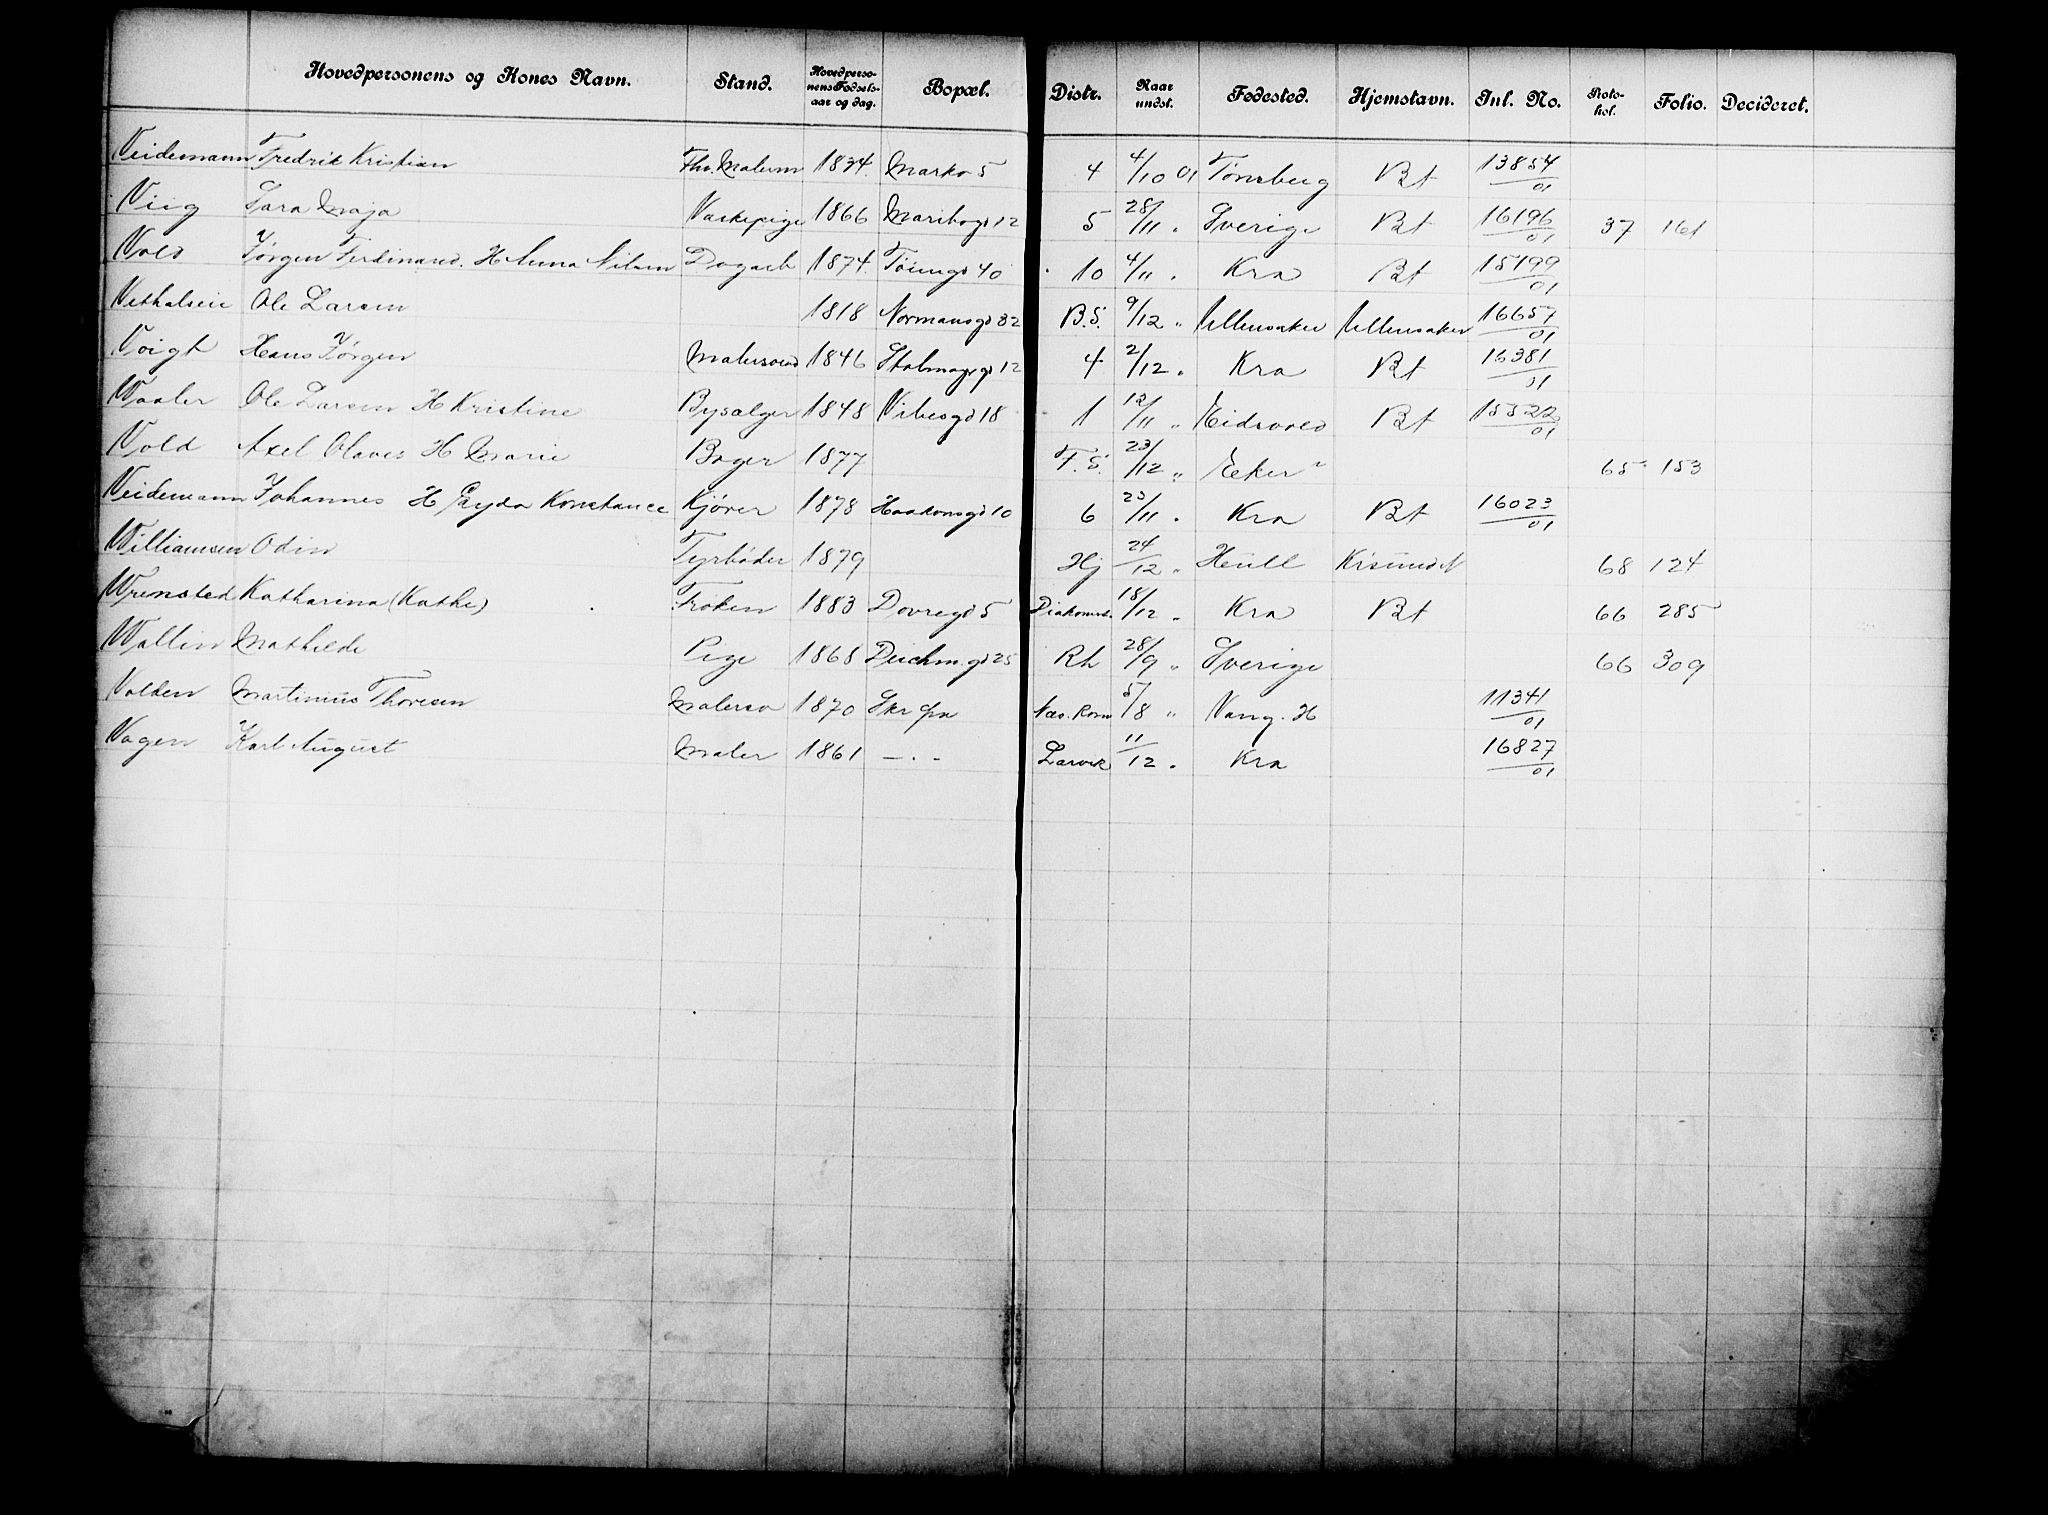 Hovedpersonens og Kones Navn. Stand. Hovedpersonens Fødselsaar og dag. Bopæl. Distr. Naar undst. Fødested. Hjemstavn. Inl. No. Protokol. Folio. Decideret.
Veidemann Fredrik Kristian Fhv. Malerm 1834. Markv 5 4 4/10 01 Tønsberg Bt 13854/01
Viig Sara Maja Vaskepige 1866 Maribogd 12 5 28/11 " Sverige Bt 16196/01 37 161
Vold Jørgen Ferdinand. H Anna Nilsen Dagarb 1874. Tøiengd 40 10 4/11 " Kra Bt 15199/01
Ole Larsen 1818 Normansgd 32 B.S. 9/12 " Ullensaker Ullensaker 16657/01
Voigt Hans Jørgen Malersvend 1846 Stolmagrgd 12 4 2/12 " Kra Bt 16381/01
Waaler Ole Larsen H Kristine Bysælger 1848 Vibesgd 18 1 12/11 " Eidsvold Bt 15322/01
Vold Axel Olaves H Marie Bager 1877 F.S. 23/12 " Eeker 65 153
Veidemann Johannes H Gyda Konstance Kjører 1878 Haakonsgd 10 6 23/11 " Kra Bt 16023/01
Williamsen Odin Fyrbøder 1879 Hj 24/12 " Krisundet 68 124
Wrensted Katharina (Kathe) Frøken 1883 Dovregd 5 Diakoniss. 18/12 " Kra Bt 66 285
Wallin Mathilde Pige 1868 Deichm.gd 25 Rh 28/9 " Sverige 66 309
Volden Martinius Thoresen Malersv 1870 Næs. Rom 5/8 " Vang. H 11341/01
Vagen Karl August Maler 1861 — . - Larvik 11/12 " Kra 16827/01